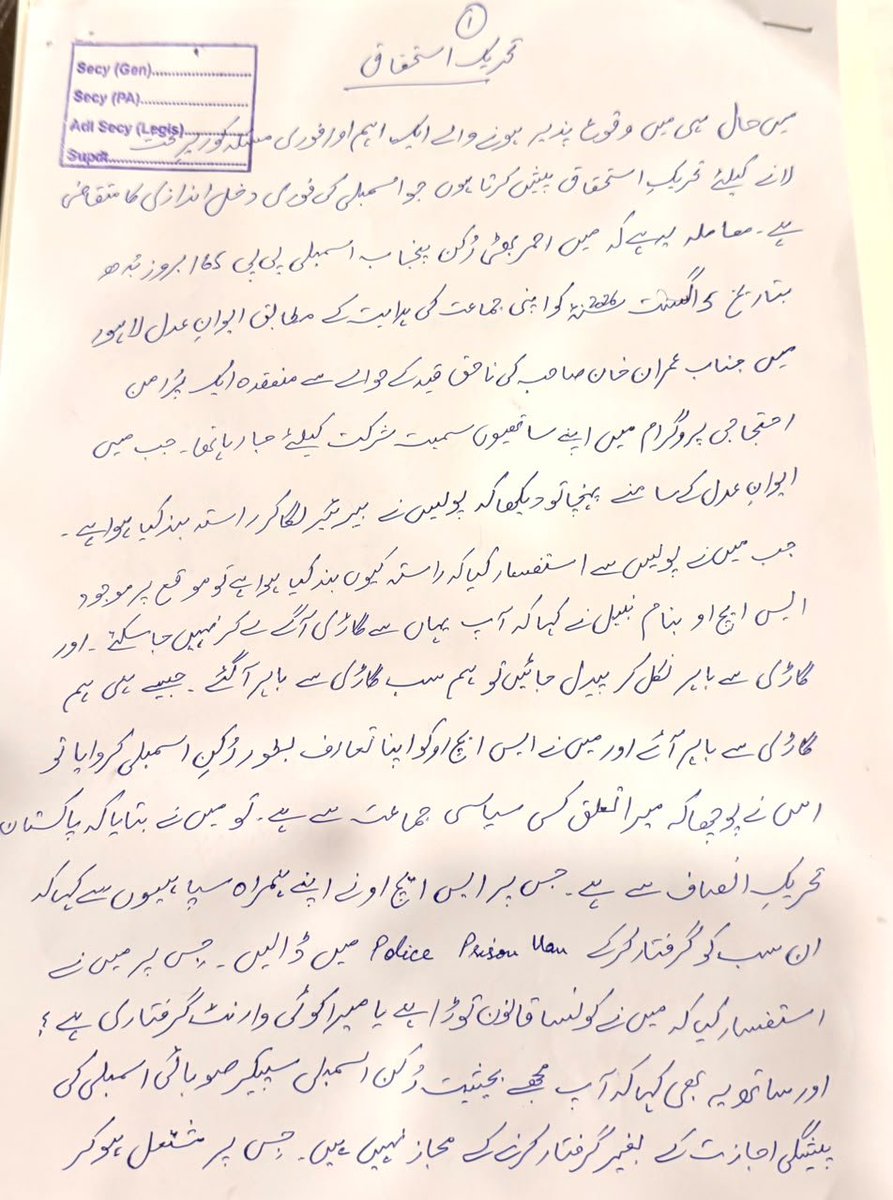 ۱
تحریک استحقاق
Secy (Gen)....................
Secy (PA)....................
Adl Secy (Legis)....................
Supdt....................
میں حال ہی میں وقوع پذیر ہونے والے ایک اہم اور فوری مسئلہ کو زیر بحث
لانے کیلئے تحریکِ استحقاق پیش کرتا ہوں جو اسمبلی کی فوری دخل اندازی کا متقاضی
ہے۔ معاملہ یہ ہے کہ میں احمر بھٹی رُکن پنجاب اسمبلی پی پی 165 بروز بُدھ
بتاریخ 5 اگست 2026 کو اپنی جماعت کی ہدایت کے مطابق ایوانِ عدل لاہور
میں جناب عمران خان صاحب کی ناحق قید کے حوالے سے منعقدہ ایک پُرامن
احتجاجی پروگرام میں اپنے ساتھیوں سمیت شرکت کیلئے جا رہا تھا۔ جب میں
ایوانِ عدل کے سامنے پہنچا تو دیکھا کہ پولیس نے بیریئر لگا کر راستہ بند کیا ہوا ہے۔
جب میں نے پولیس سے استفسار کیا کہ راستہ کیوں بند کیا ہوا ہے تو موقع پر موجود
ایس ایچ او بنام نبیل نے کہا کہ آپ یہاں سے گاڑی آگے لے کر نہیں جا سکتے۔ اور
گاڑی سے باہر نکل کر پیدل جائیں تو ہم سب گاڑی سے باہر آگئے۔ جیسے ہی ہم
گاڑی سے باہر آئے اور میں نے ایس ایچ او کو اپنا تعارف بطور رُکنِ اسمبلی کروایا تو
اس نے پوچھا کہ میرا تعلق کس سیاسی جماعت سے ہے۔ تو میں نے بتایا کہ پاکستان
تحریکِ انصاف سے ہے۔ جس پر ایس ایچ او نے اپنے ہمراہ سپاہیوں سے کہا کہ
ان سب کو گرفتار کر کے Police Prison Van میں ڈالیں۔ جِس پر میں نے
استفسار کیا کہ میں نے کونسا قانون توڑا ہے یا میرا کوئی وارنٹ گرفتاری ہے؟
اور ساتھ یہ بھی کہا کہ آپ مجھے بحیثیت رُکن اسمبلی سپیکر صوبائی اسمبلی کی
پیشگی اجازت کے بغیر گرفتار کرنے کے مجاز نہیں ہیں۔ جِس پر مشتعل ہو کر